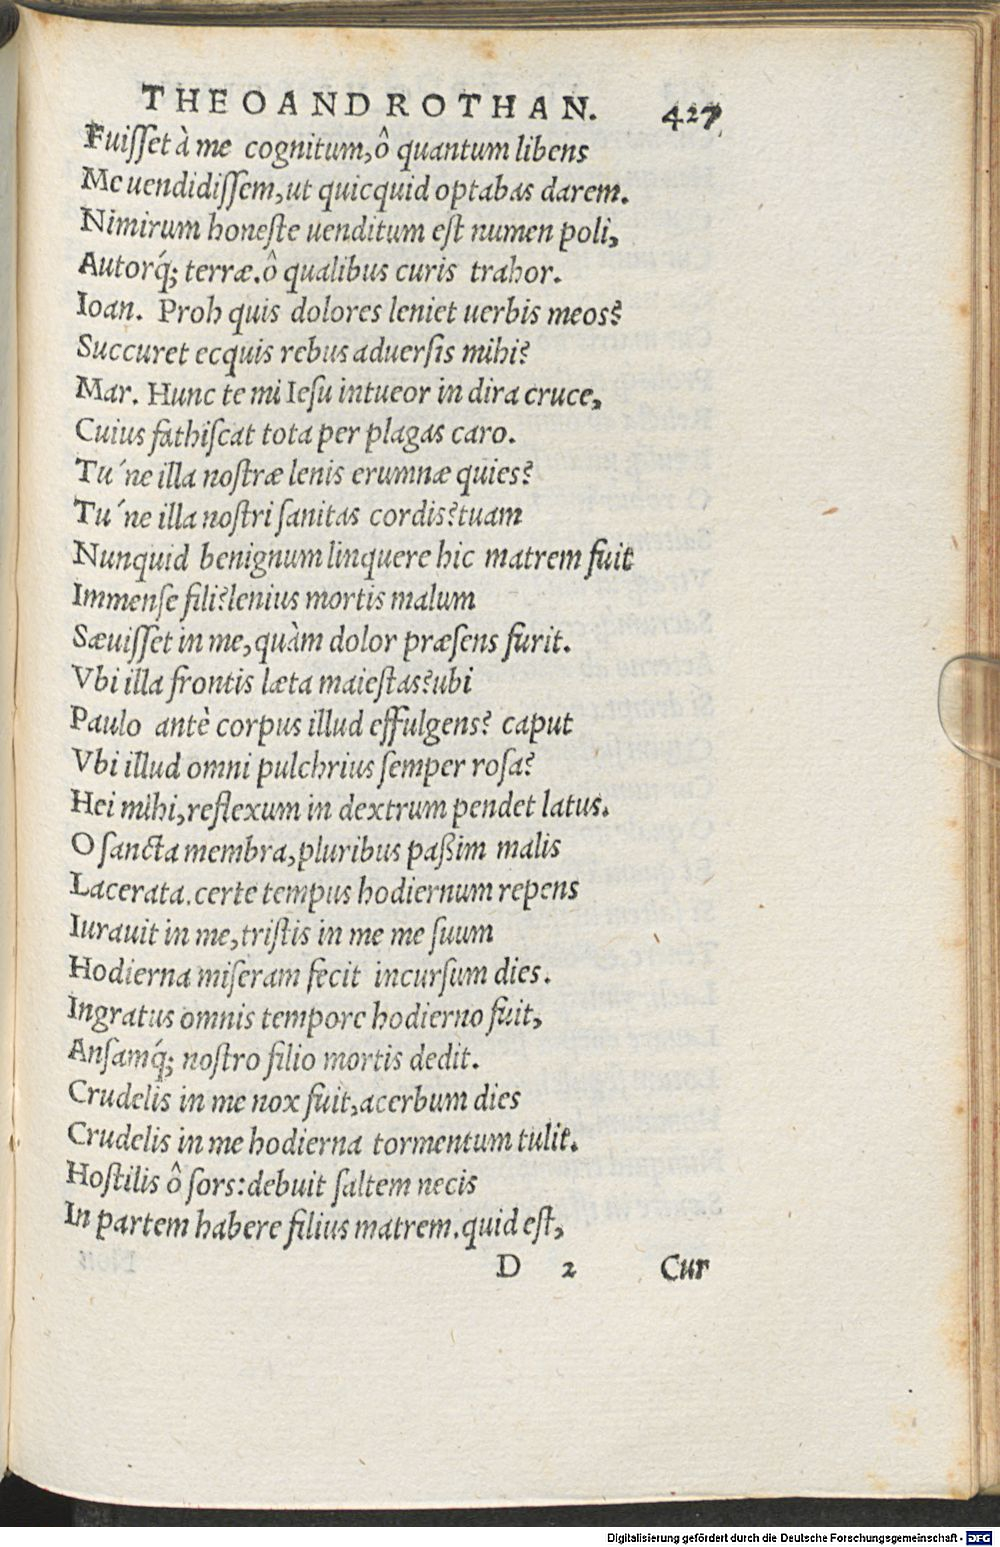 THEOANDROTHAN. 427
Fuiſſet à me cognitum, ô quantum libens
Me uendidiſſem, ut quicquid optabas darem.
Nimirum honeſte uenditum eſt numen poli,
Autorq́; terræ. ô qualibus curis trahor.
Ioan. Proh quis dolores leniet uerbis meos?
Succuret ecquis rebus aduerſis mihi?
Mar. Hunc te mi Ieſu intueor in dira cruce,
Cuius fathiſcat tota per plagas caro.
Tu´ne illa noſtræ lenis erumnæ quies?
Tu´ne illa noſtri ſanitas cordis? tuam
Nunquid benignum linquere hic matrem fuit
Immenſe fili? lenius mortis malum
Sæuiſſet in me, quàm dolor præſens furit.
Vbi illa frontis læta maieſtas? ubi
Paulo antè corpus illud effulgens? caput
Vbi illud omni pulchrius ſemper roſa?
Hei mihi, reflexum in dextrum pendet latus.
O ſancta membra, pluribus paßim malis
Lacerata. certe tempus hodiernum repens
Iurauit in me, triſtis in me me ſuum
Hodierna miſeram fecit incurſum dies.
Ingratus omnis tempore hodierno fuit,
Anſamq́; noſtro filio mortis dedit.
Crudelis in me nox fuit, acerbum dies
Crudelis in me hodierna tormentum tulit.
Hoſtilis ô ſors: debuit ſaltem necis
In partem habere filius matrem. quid eſt,
D 2 Cur
Digitalisierung gefördert durch die Deutsche Forschungsgemeinschaft - DFG